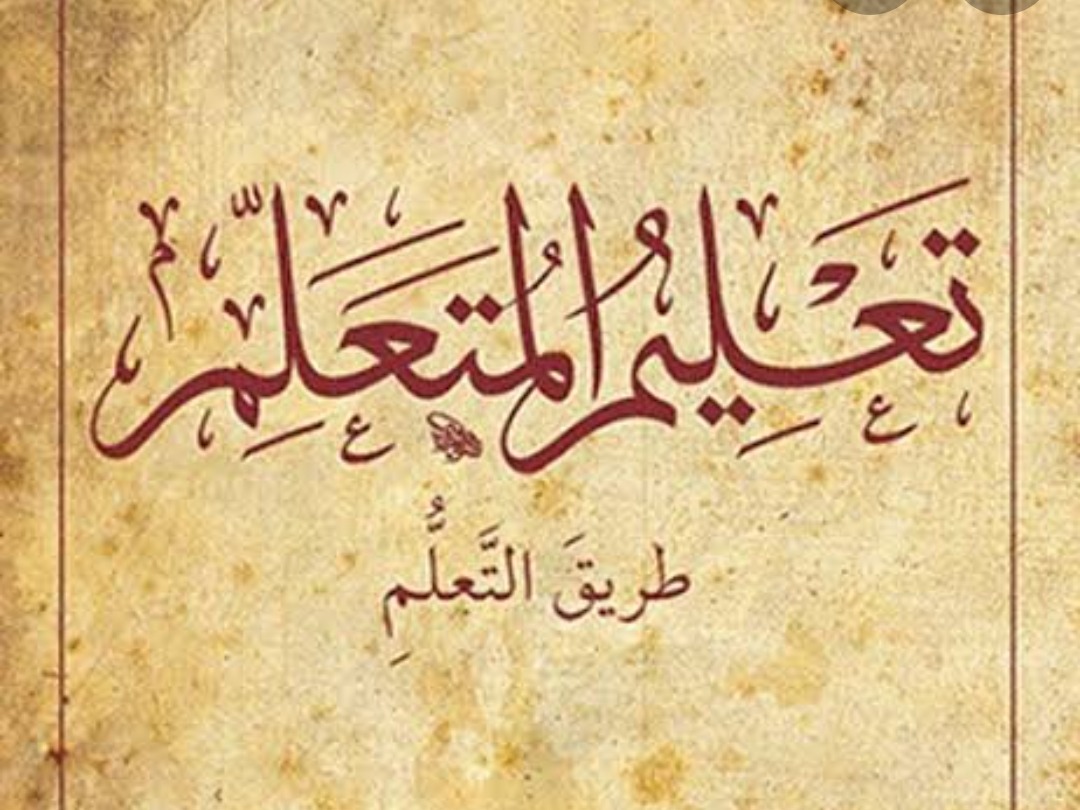 تَعْلِيمُ الْمُتَعَلِّمِ
طريقَ التَّعلُّمِ